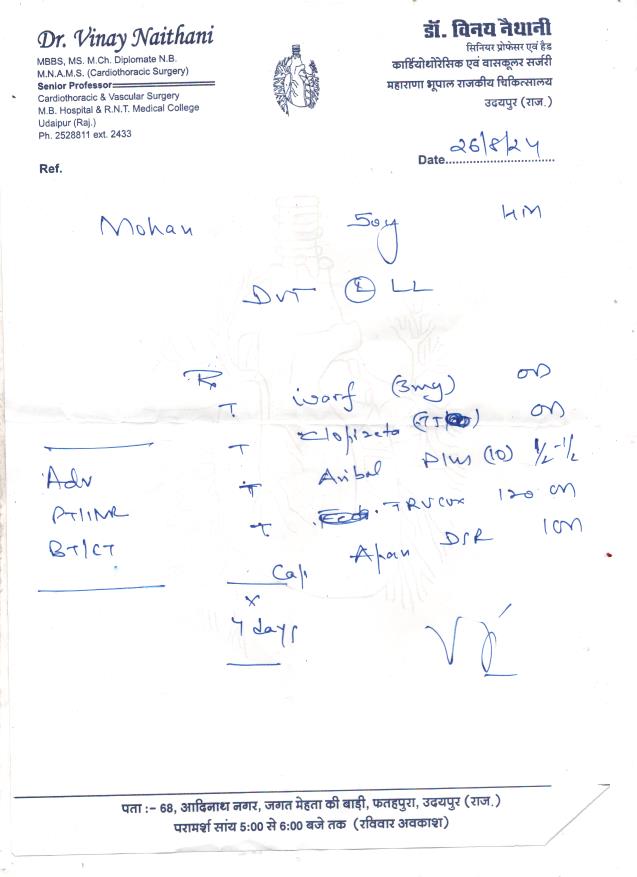 Dr. Vinay Naithani
MBBS, MS. M.Ch. Diplomate N.B.
M.N.A.M.S. (Cardiothoracic Surgery)
Senior Professor
Cardiothoracic & Vascular Surgery
M.B. Hospital & R.N.T. Medical College
Udaipur (Raj.)
Ph. 2528811 ext. 2433
डॉ. विनय नैथानी
सिनियर प्रोफेसर एवं हैड
कार्डियोथोरेसिक एवं वासकूलर सर्जरी
महाराणा भूपाल राजकीय चिकित्सालय
उदयपुर (राज.)
Ref.
Date 26/8/24
Mohan 50y HM
DVT (L) LL
Rx
T warf (3mg) OD
T OD
T Plus (10) 1/2-1/2
T 120 OD
Cap DSR 1 OD
x
7 days
Adv
PT/INR
BT/CT
पता :- 68, आदिनाथ नगर, जगत मेहता की बाड़ी, फतहपुरा, उदयपुर (राज.)
परामर्श सांय 5:00 से 6:00 बजे तक (रविवार अवकाश)